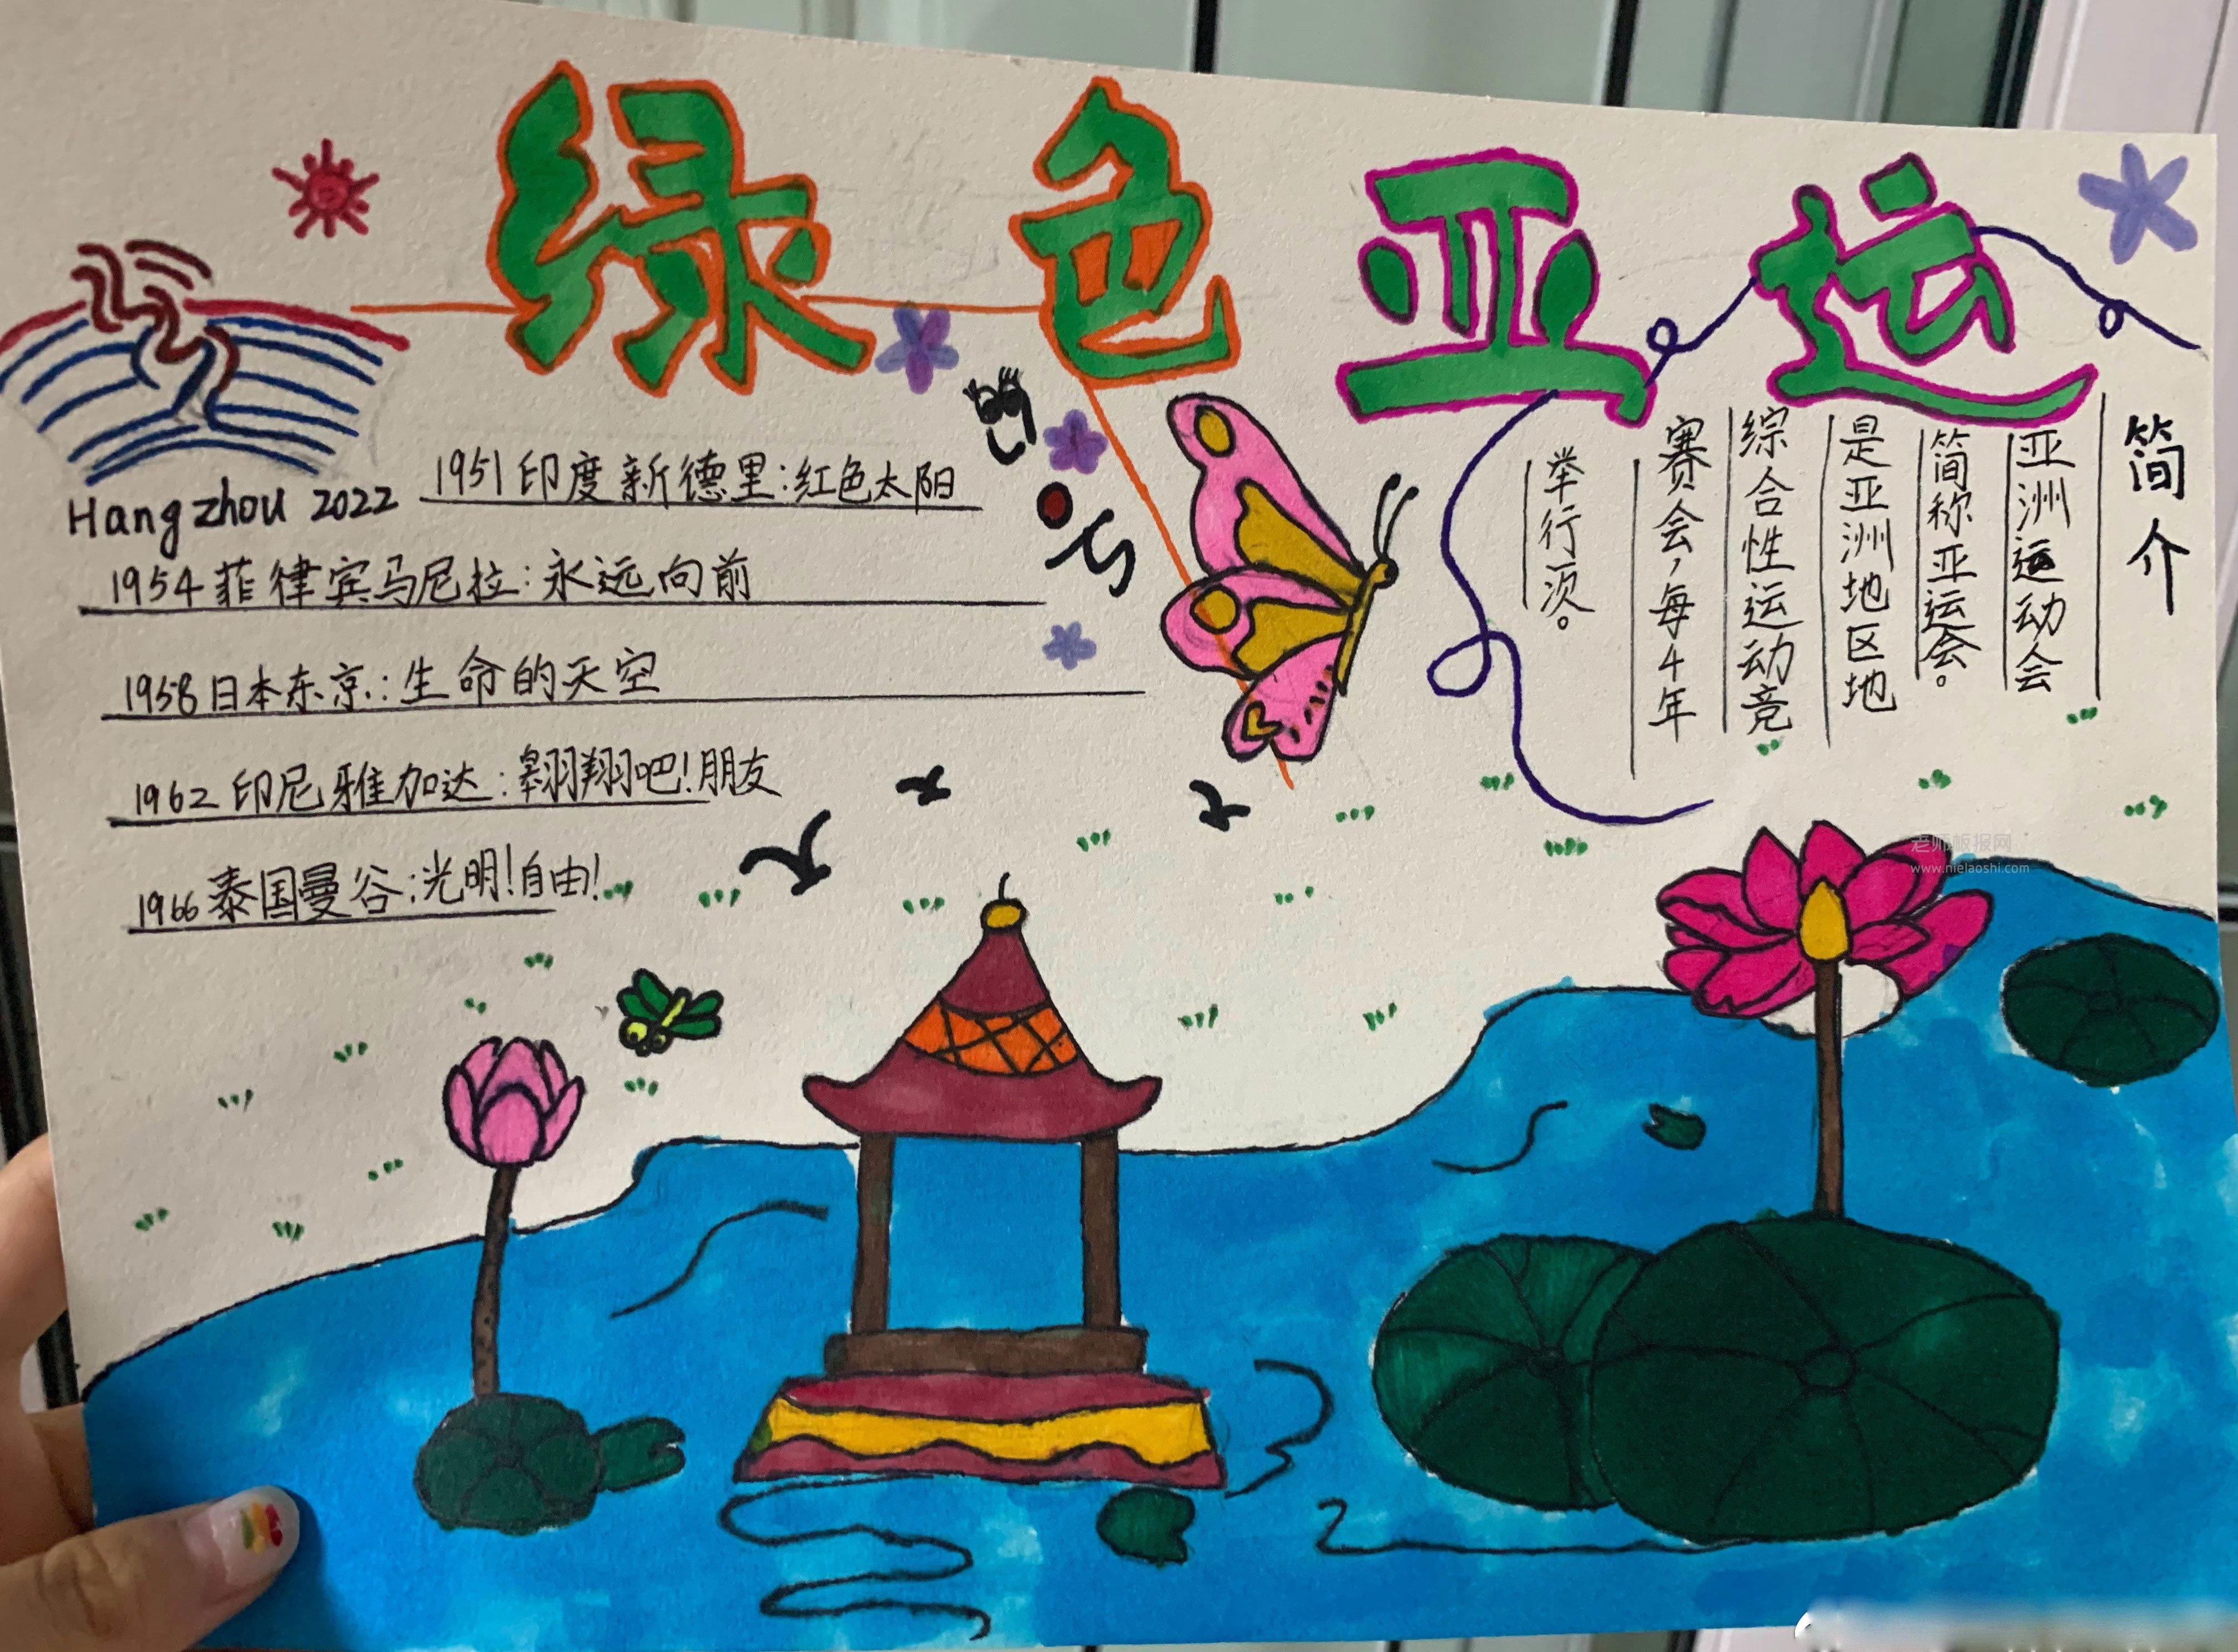 绿色亚运
Hangzhou 2022
1951印度新德里:红色太阳
1954菲律宾马尼拉:永远向前
1958日本东京:生命的天空
1962印尼雅加达:翱翔吧!朋友
1966泰国曼谷:光明!自由!
简介
亚洲运动会
简称亚运会。
是亚洲地区地
综合性运动竞
赛会,每4年
举行次。
老师板报网
www.nielaoshi.com